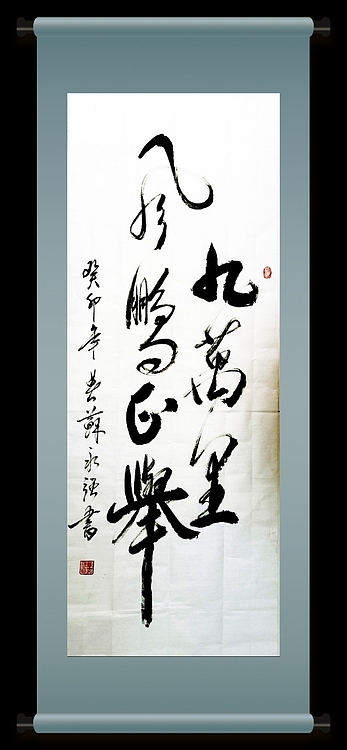 九萬里
風鵬正舉
癸卯年春蘇永強書